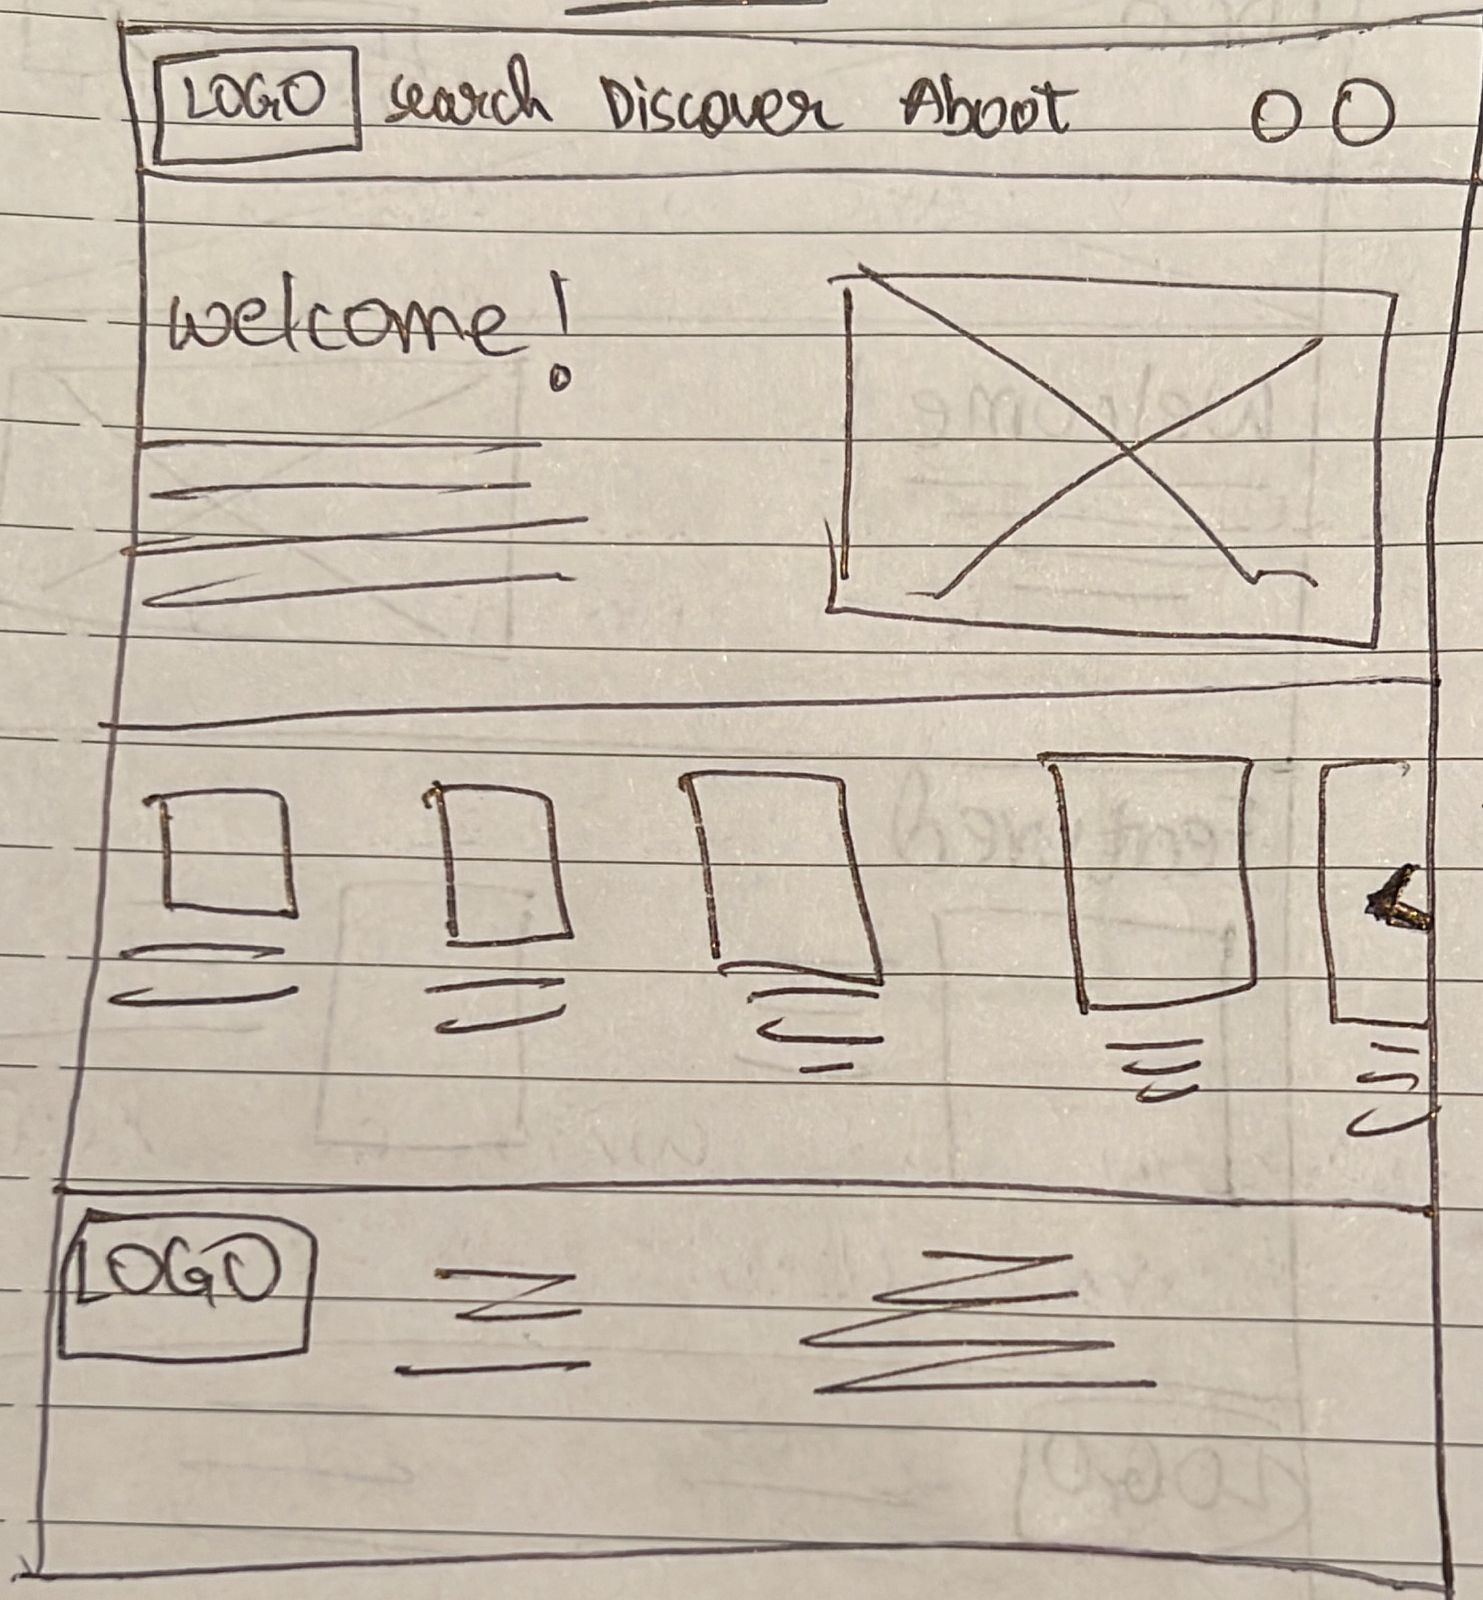 LOGO search Discover Aboot
welcome!
LOGO